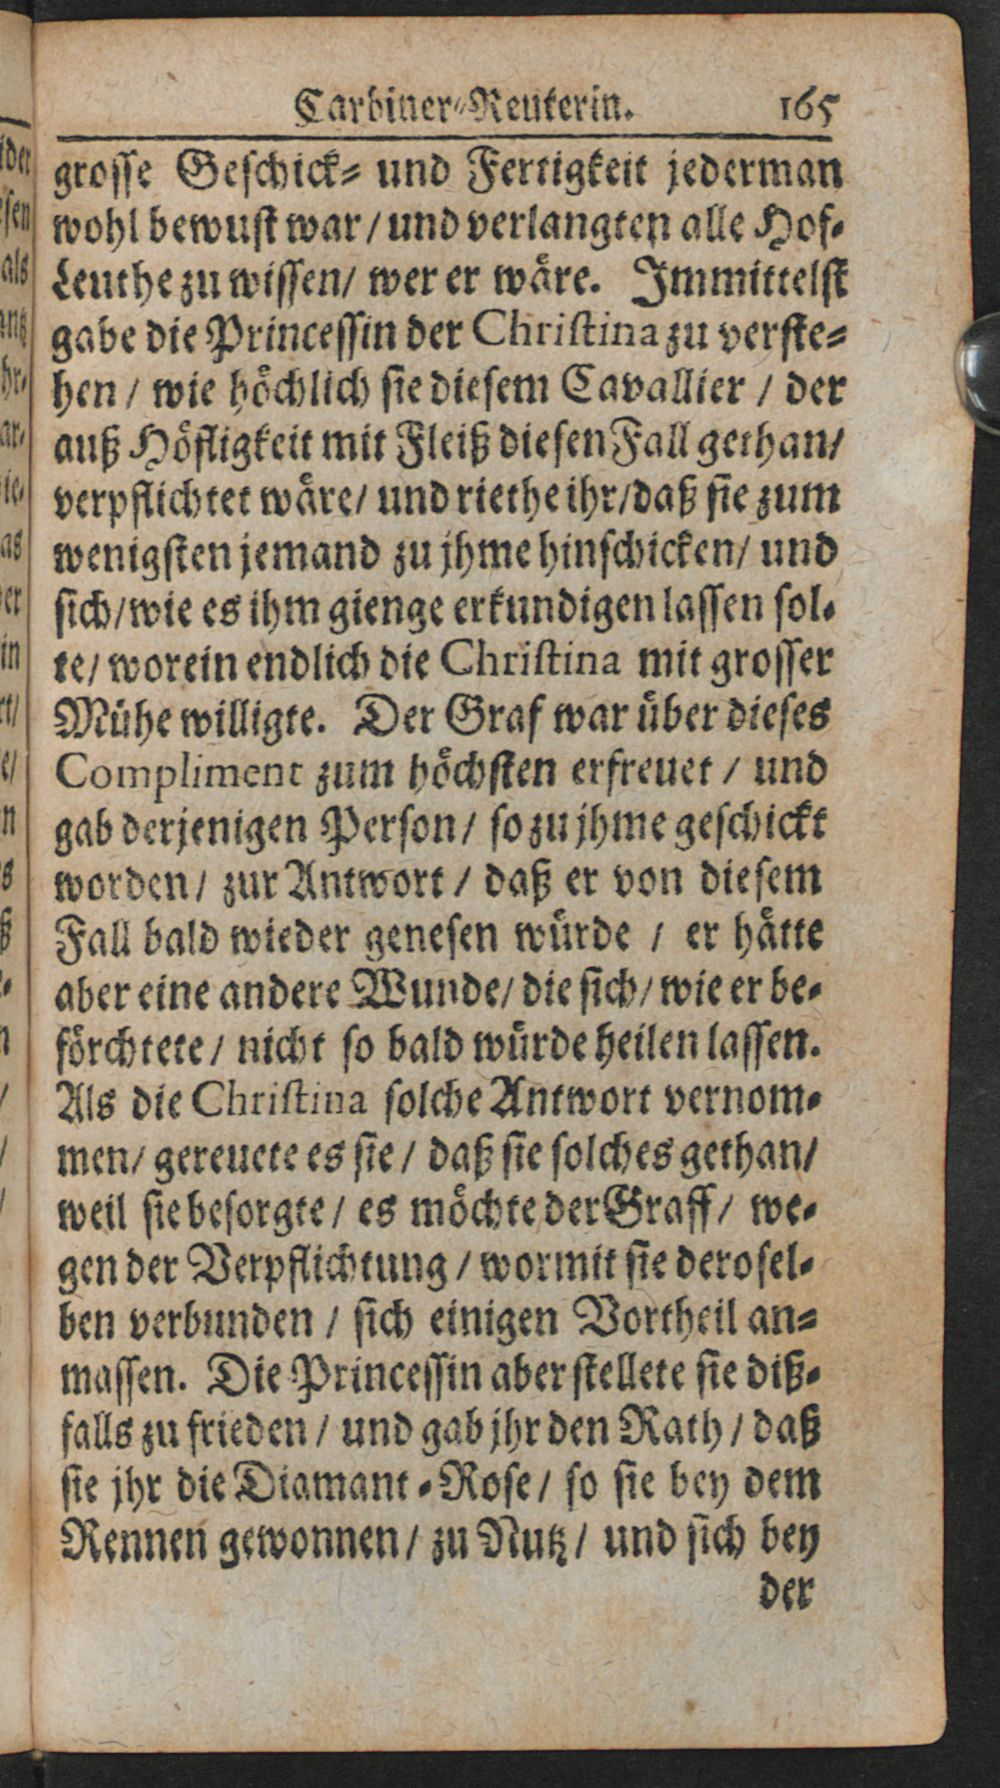 Carbiner-Reuterin. 165
grosse Geschick- und Fertigkeit jederman
wohl bewust war / und verlangten alle Hof-
Leuthe zu wissen / wer er wäre. Immittelst
gabe die Princessin der Christina zu verste-
hen / wie höchlich sie diesem Cavallier / der
auß Höfligkeit mit Fleiß diesen Fall gethan /
verpflichtet wäre / und riethe ihr / daß sie zum
wenigsten jemand zu jhme hinschicken / und
sich / wie es ihm gienge erkundigen lassen sol-
te / worein endlich die Christina mit grosser
Mühe willigte. Der Graf war über dieses
Compliment zum höchsten erfreuet / und
gab derjenigen Person / so zu jhme geschickt
worden / zur Antwort / daß er von diesem
Fall bald wieder genesen würde / er hätte
aber eine andere Wunde / die sich / wie er be-
förchtete / nicht so bald würde heilen lassen.
Als die Christina solche Antwort vernom-
men / gereuete es sie / daß sie solches gethan /
weil sie besorgte / es möchte der Graff / we-
gen der Verpflichtung / wormit sie derosel-
ben verbunden / sich einigen Vortheil an-
massen. Die Princessin aber stellete sie diß-
falls zu frieden / und gab jhr den Rath / daß
sie jhr die Diamant-Rose / so sie bey dem
Rennen gewonnen / zu Nutz / und sich bey
der